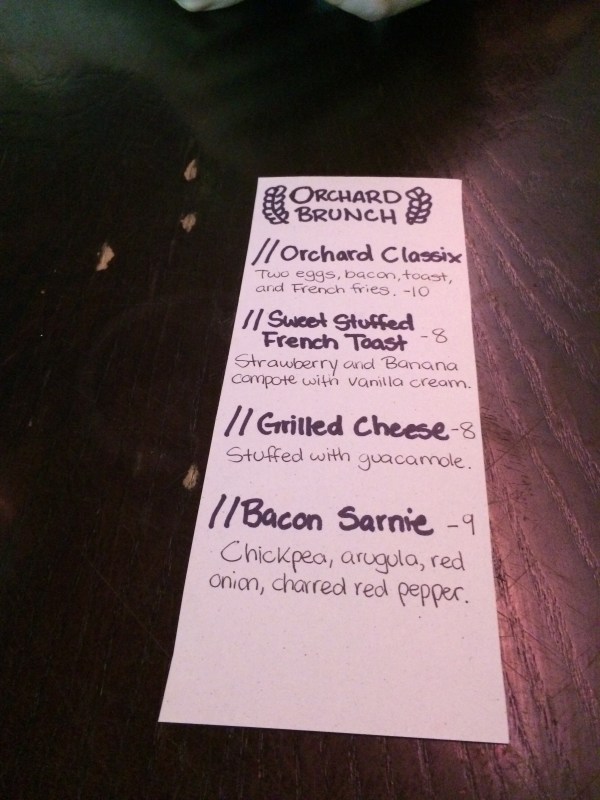 ORCHARD
BRUNCH
//Orchard Classix
Two eggs, bacon, toast,
and French fries. -10
//Sweet Stuffed
French Toast -8
Strawberry and Banana
compote with vanilla cream.
//Grilled Cheese -8
Stuffed with guacamole.
//Bacon Sarnie -9
Chickpea, arugula, red
onion, charred red pepper.